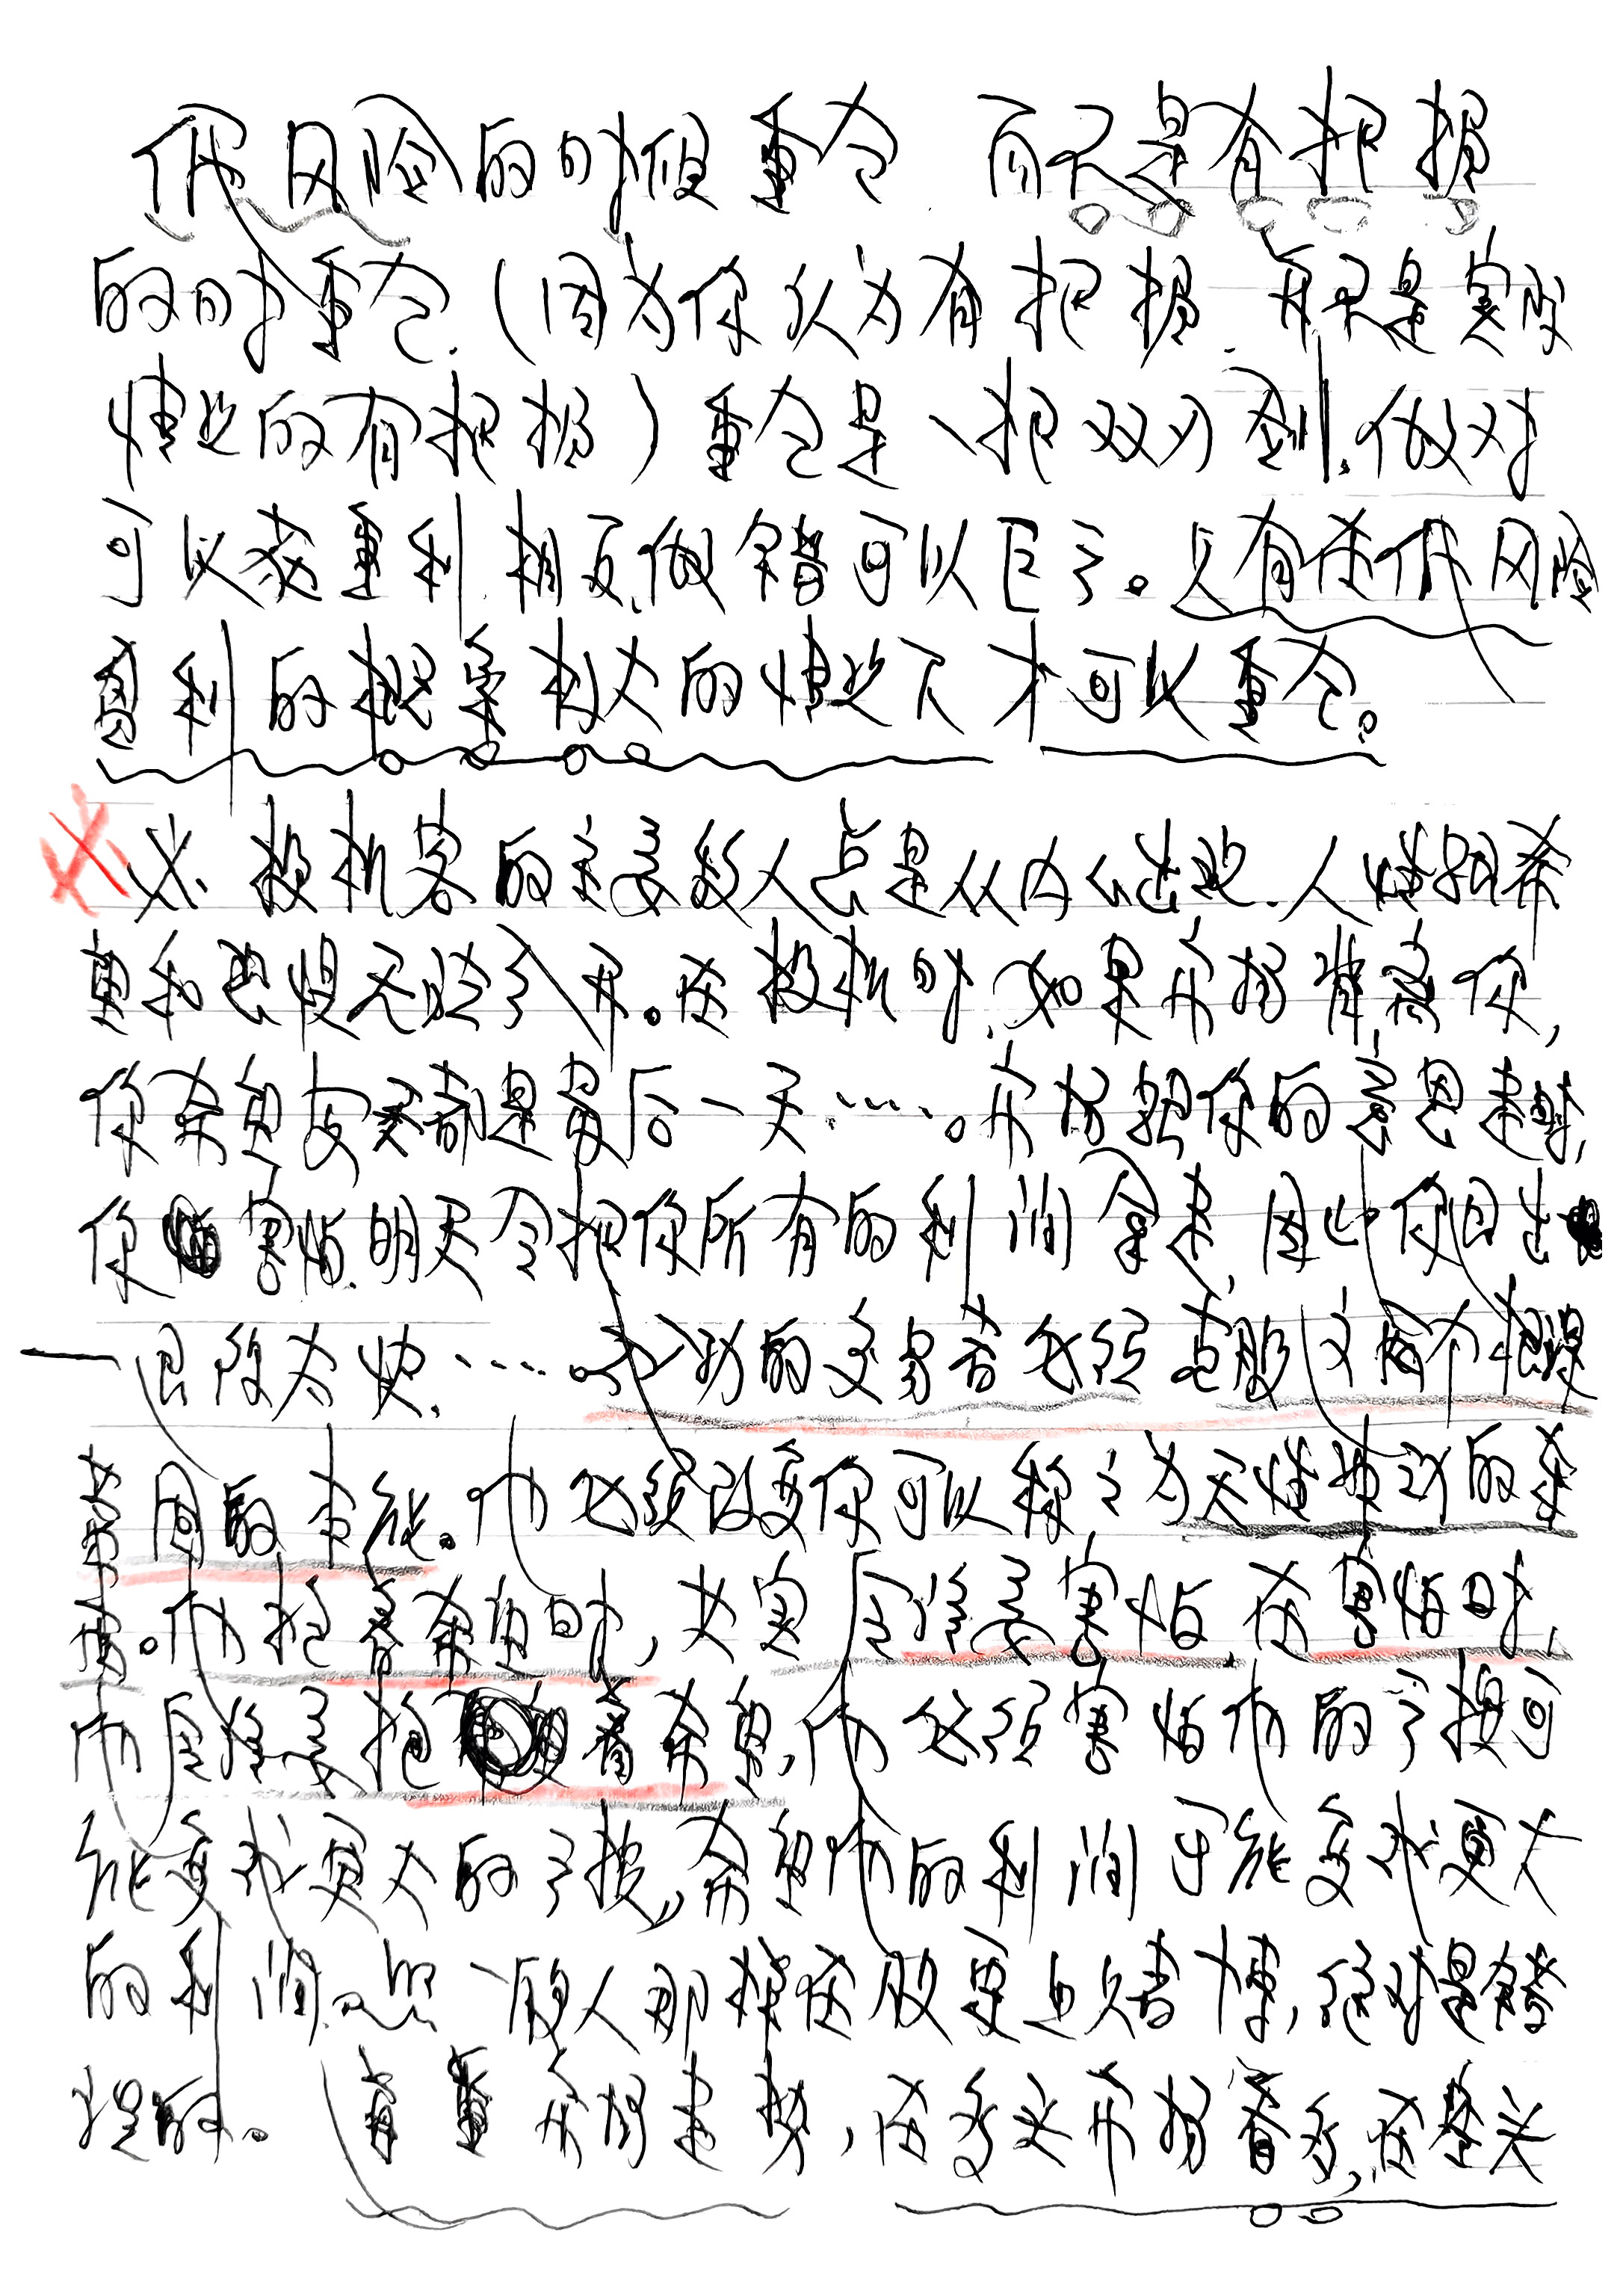 低风险的时候重仓 而不是有把握
的时重仓.(因为你认为有把握.并不是实际
情况的有把握)重仓是一把双刃剑.做对
可以获重利.相反.做错可以巨亏。只有在低风险
复利的概率极大的情况下才可以重仓。
义.投机客的主要敌人总是从内心出现.人性跟希
望和恐惧无法分开。在投机时.如果市场背离你,
你希望每天都是最后一天…….。市场跟你的意思走时,
你害怕.明天会把你所有的利润拿走.因此你因出
一退 太快.….。成功的交易者必须克服这两个根深
蒂固的本能。他必须改变你可以称之为天性 的
。他抱着希望时,其实 是要害怕.在害怕时,
他 是要抱着希望,他必须害怕他的亏损可
能变成更大的亏损,,希望他的利润可能变成更大
的利润。照一般人那样在股票 赌博,绝对是错
误的。 市场走势,在多头市场看多,在空头